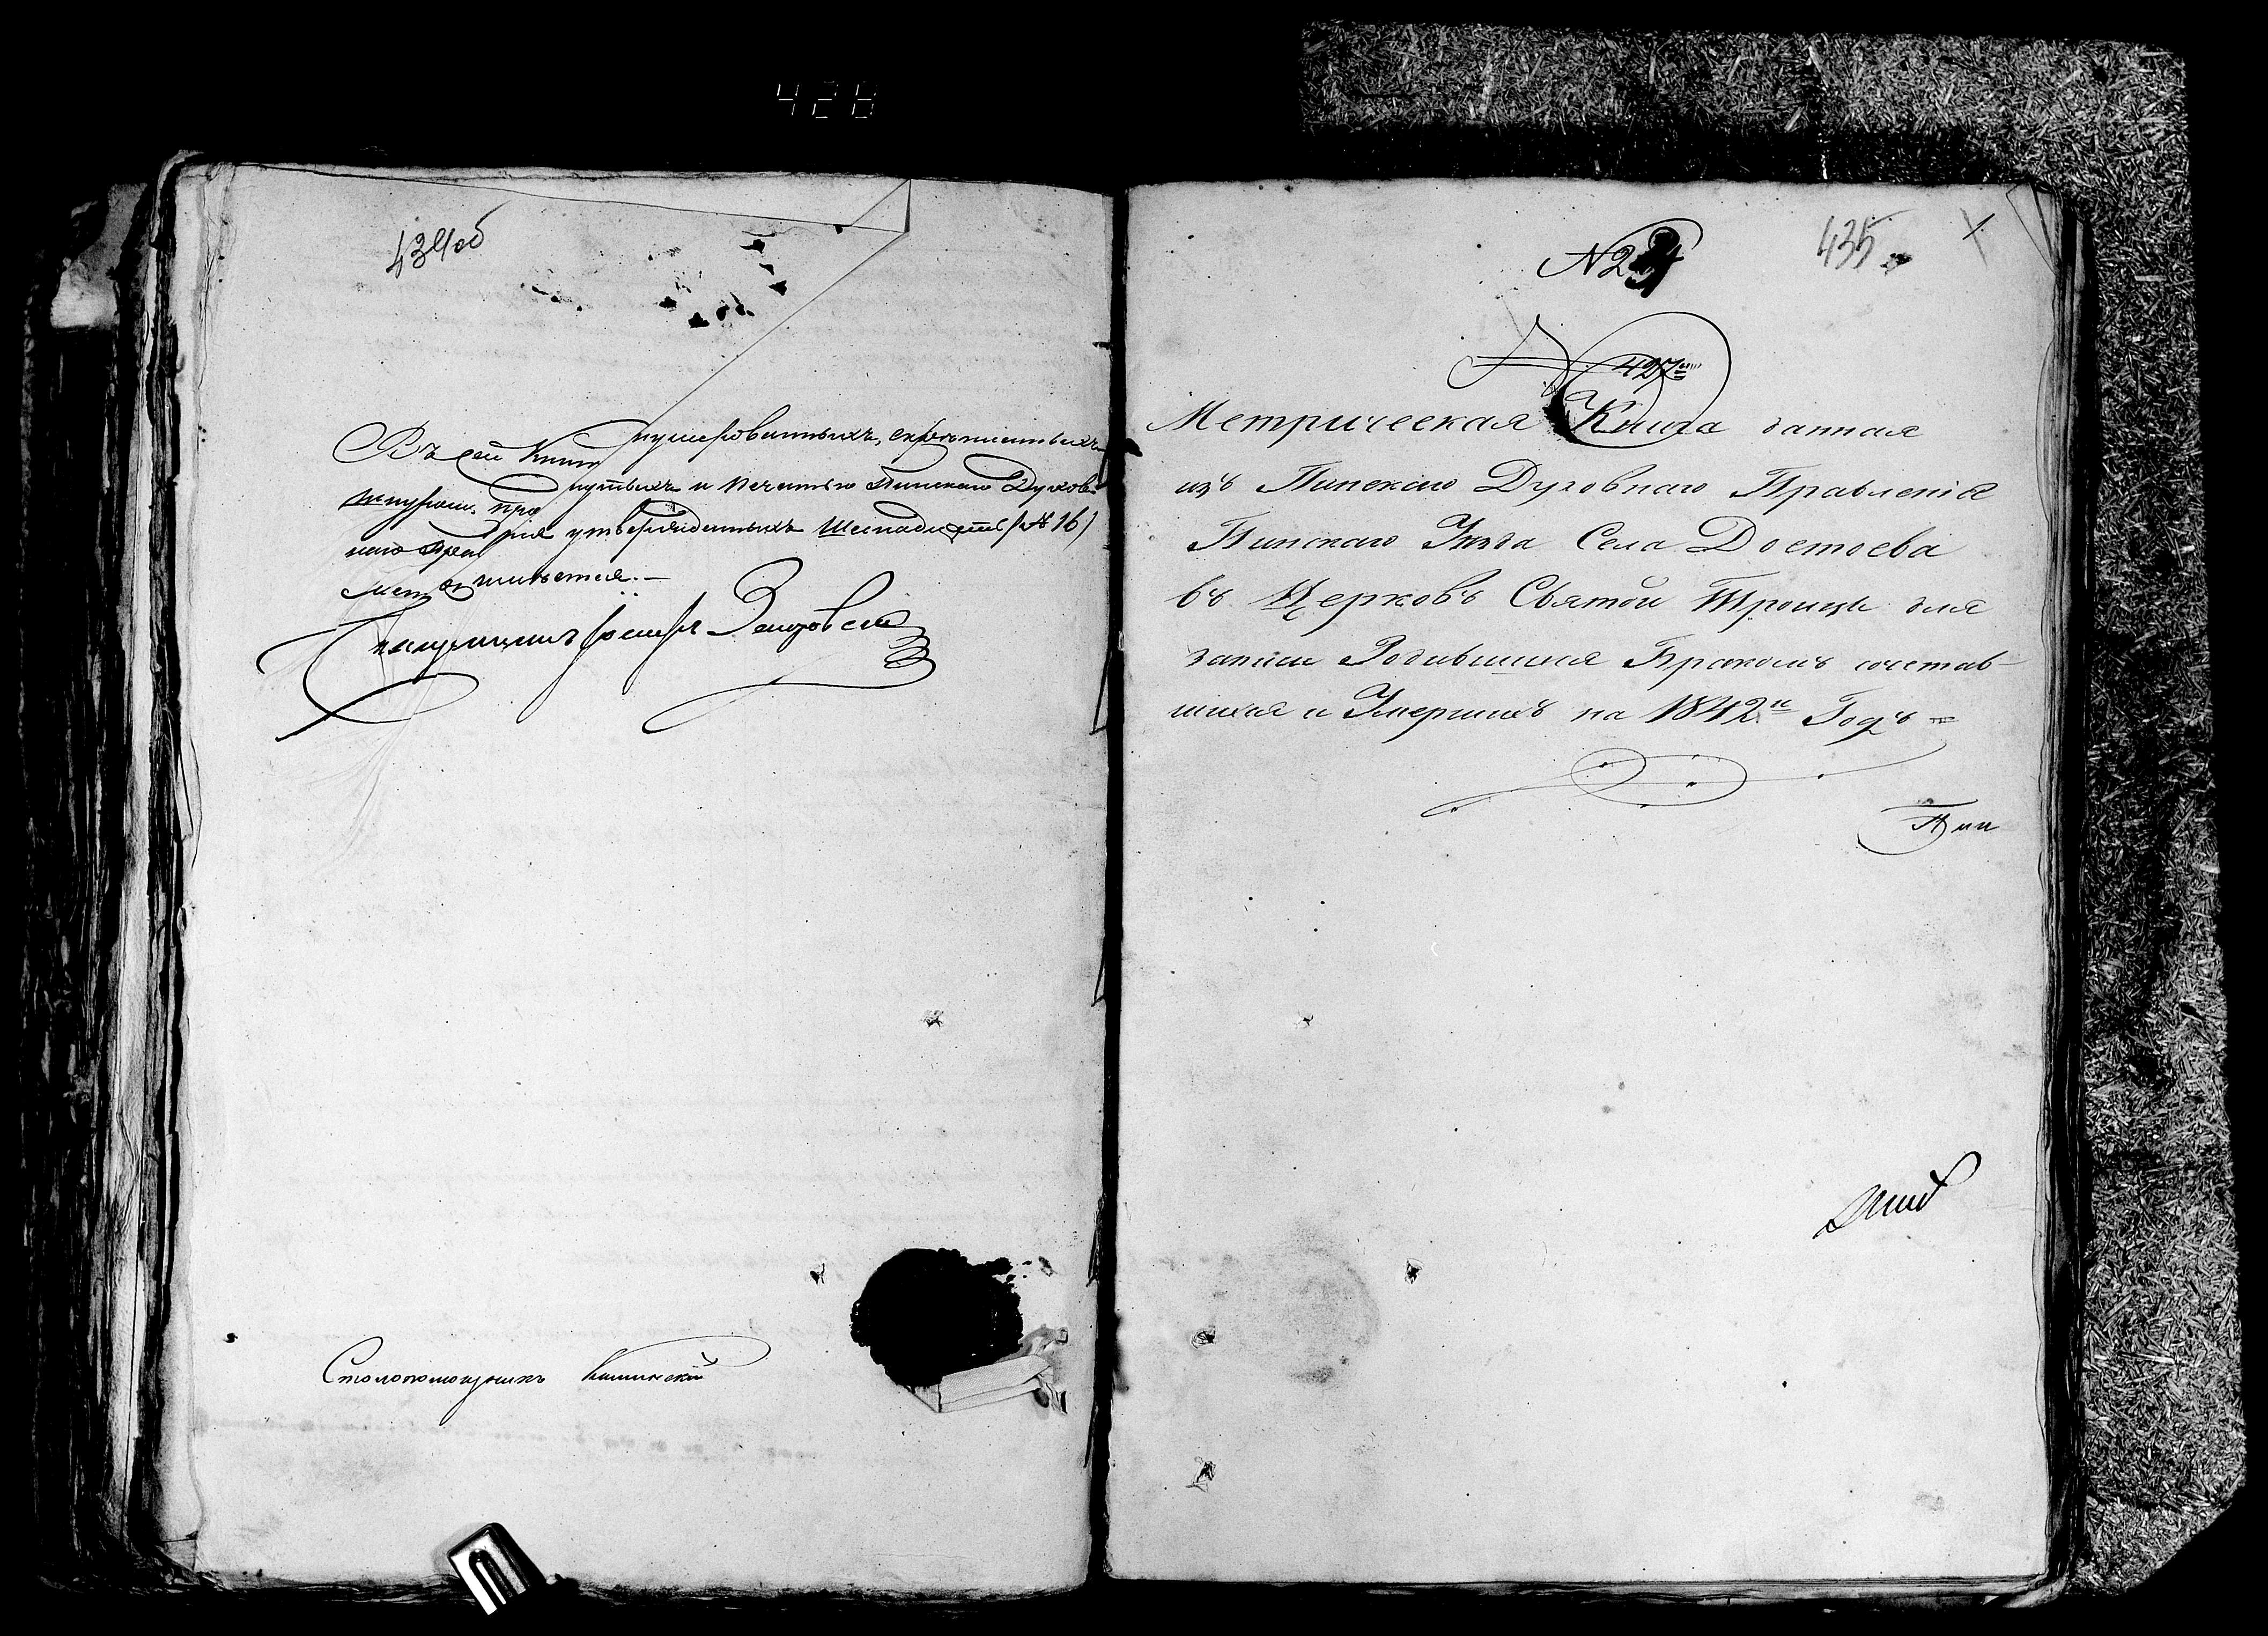 428
434об
Въ сей Книг нумерованныхъ, скрепленныхъ
шнуром про нутыхъ и печатью Пинского Духов
наго Прав ния утвержденныхъ Шеснадцать (№ 16)
лист ется.—
Столопомощникъ
435
1.
№ 2
№ 427
Метрическая Книга данная
изъ Пинского Духовнаго Правленія
Пинскаго Уезда Села Достоева
въ Церковъ Святой Троицы для
записи Родившихся Бракомъ сочетав-
шихся и Умершихъ на 1842й Годъ =
Пин